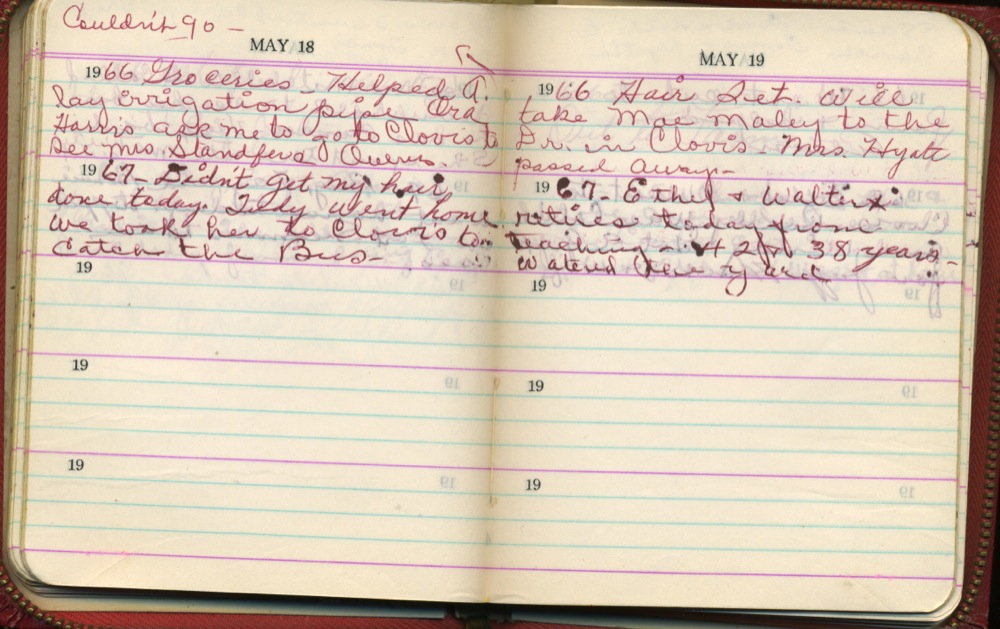 Couldn't go -
MAY 18
1966 Groceries - Helped A.
lay irrigation pipe Ora
Harris ask me to go to Clovis to
see Mrs Standfera
1967 - Didn't get my hair
done today. Judy went home
we took her to Clovis to
catch the Bus -
19
19
19
MAY 19
1966 Hair Set. Will
take Mae Maley to the
Dr. in Clovis Mrs. Hyatt
passed away -
1967 - Ethel & Walter
retires today from
teaching - 42 & 38 years -
Watered yard
19
19
19